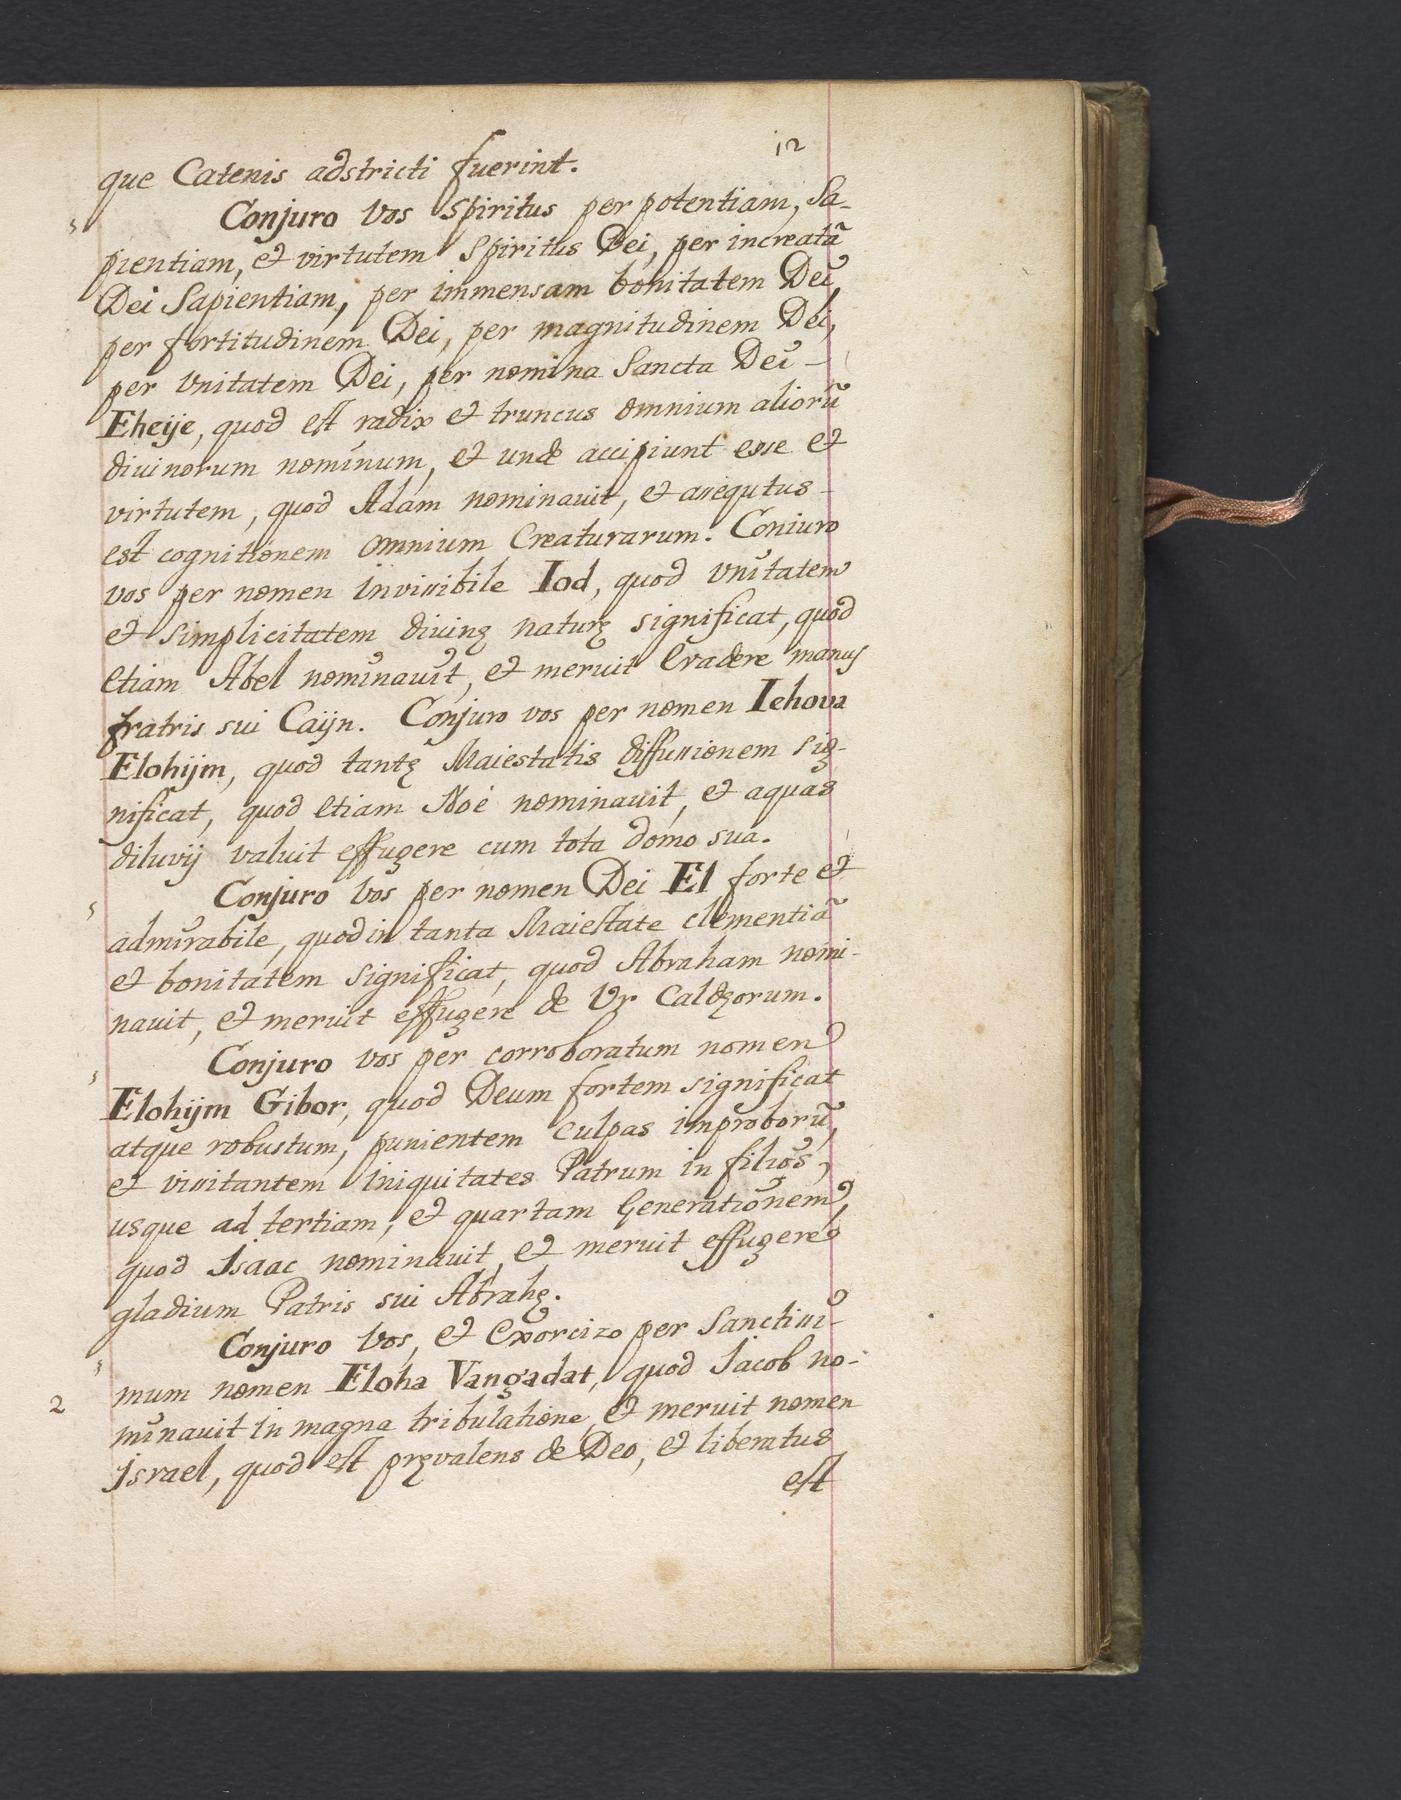 12
que Catenis adstricti fuerint.
Conjuro vos Spiritus per potentiam, Sa-
pientiam, et virtutem Spiritus Dei, per increatã
Dei Sapientiam, per immensam bonitatem Dei,
per fortitudinem Dei, per magnitudinem Dei,
per vnitatem Dei, per nomina Sancta Dei -
Eheije, quod est radix et truncus omnium aliorũ
diuinorum nominum, et unde accipiunt esse et
virtutem, quod Adam nominauit, et assequtus -
est cognitionem omnium Creaturarum. Coniuro
vos per nomen invissibile Iod, quod vnitatem
et simplicitatem diuinę naturę significat, quod
etiam Abel nominauit, et meruit evadere manus
fratris sui Caijn. Conjuro vos per nomen Iehova
Elohijm, quod tantę Maiestatis diffussionem sig-
nificat, quod etiam Noé nominauit, et aquas
diluvij valuit effugere cum tota domo sua.
Conjuro vos per nomen Dei El forte et
admirabile, quod in tanta Maiestate clementiã
et bonitatem significat, quod Abraham nomi-
nauit, et meruit effugere de Vr Caldęorum.
Conjuro vos per corroboratum nomen
Elohijm Gibor, quod Deum fortem significat
atque robustum, punientem culpas improborũ,
et vissitantem iniquitates Patrum in filios,
usque ad tertiam, et quartam Generationem,
quod Isaac nominauit, et meruit effugere
gladium Patris sui Abrahę.
Conjuro vos, et Exorcizo per Sanctissi-
mum nomen Eloha Vangadat, quod Jacob no-
2 minauit in magna tribulatione, et meruit nomen
Israel, quod est pręvalens de Deo, et liberatus
est